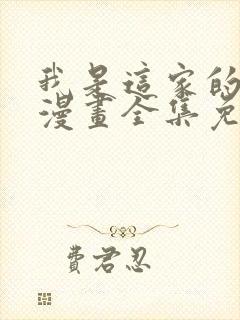 我是這家的
漫畫全集免
費君忍